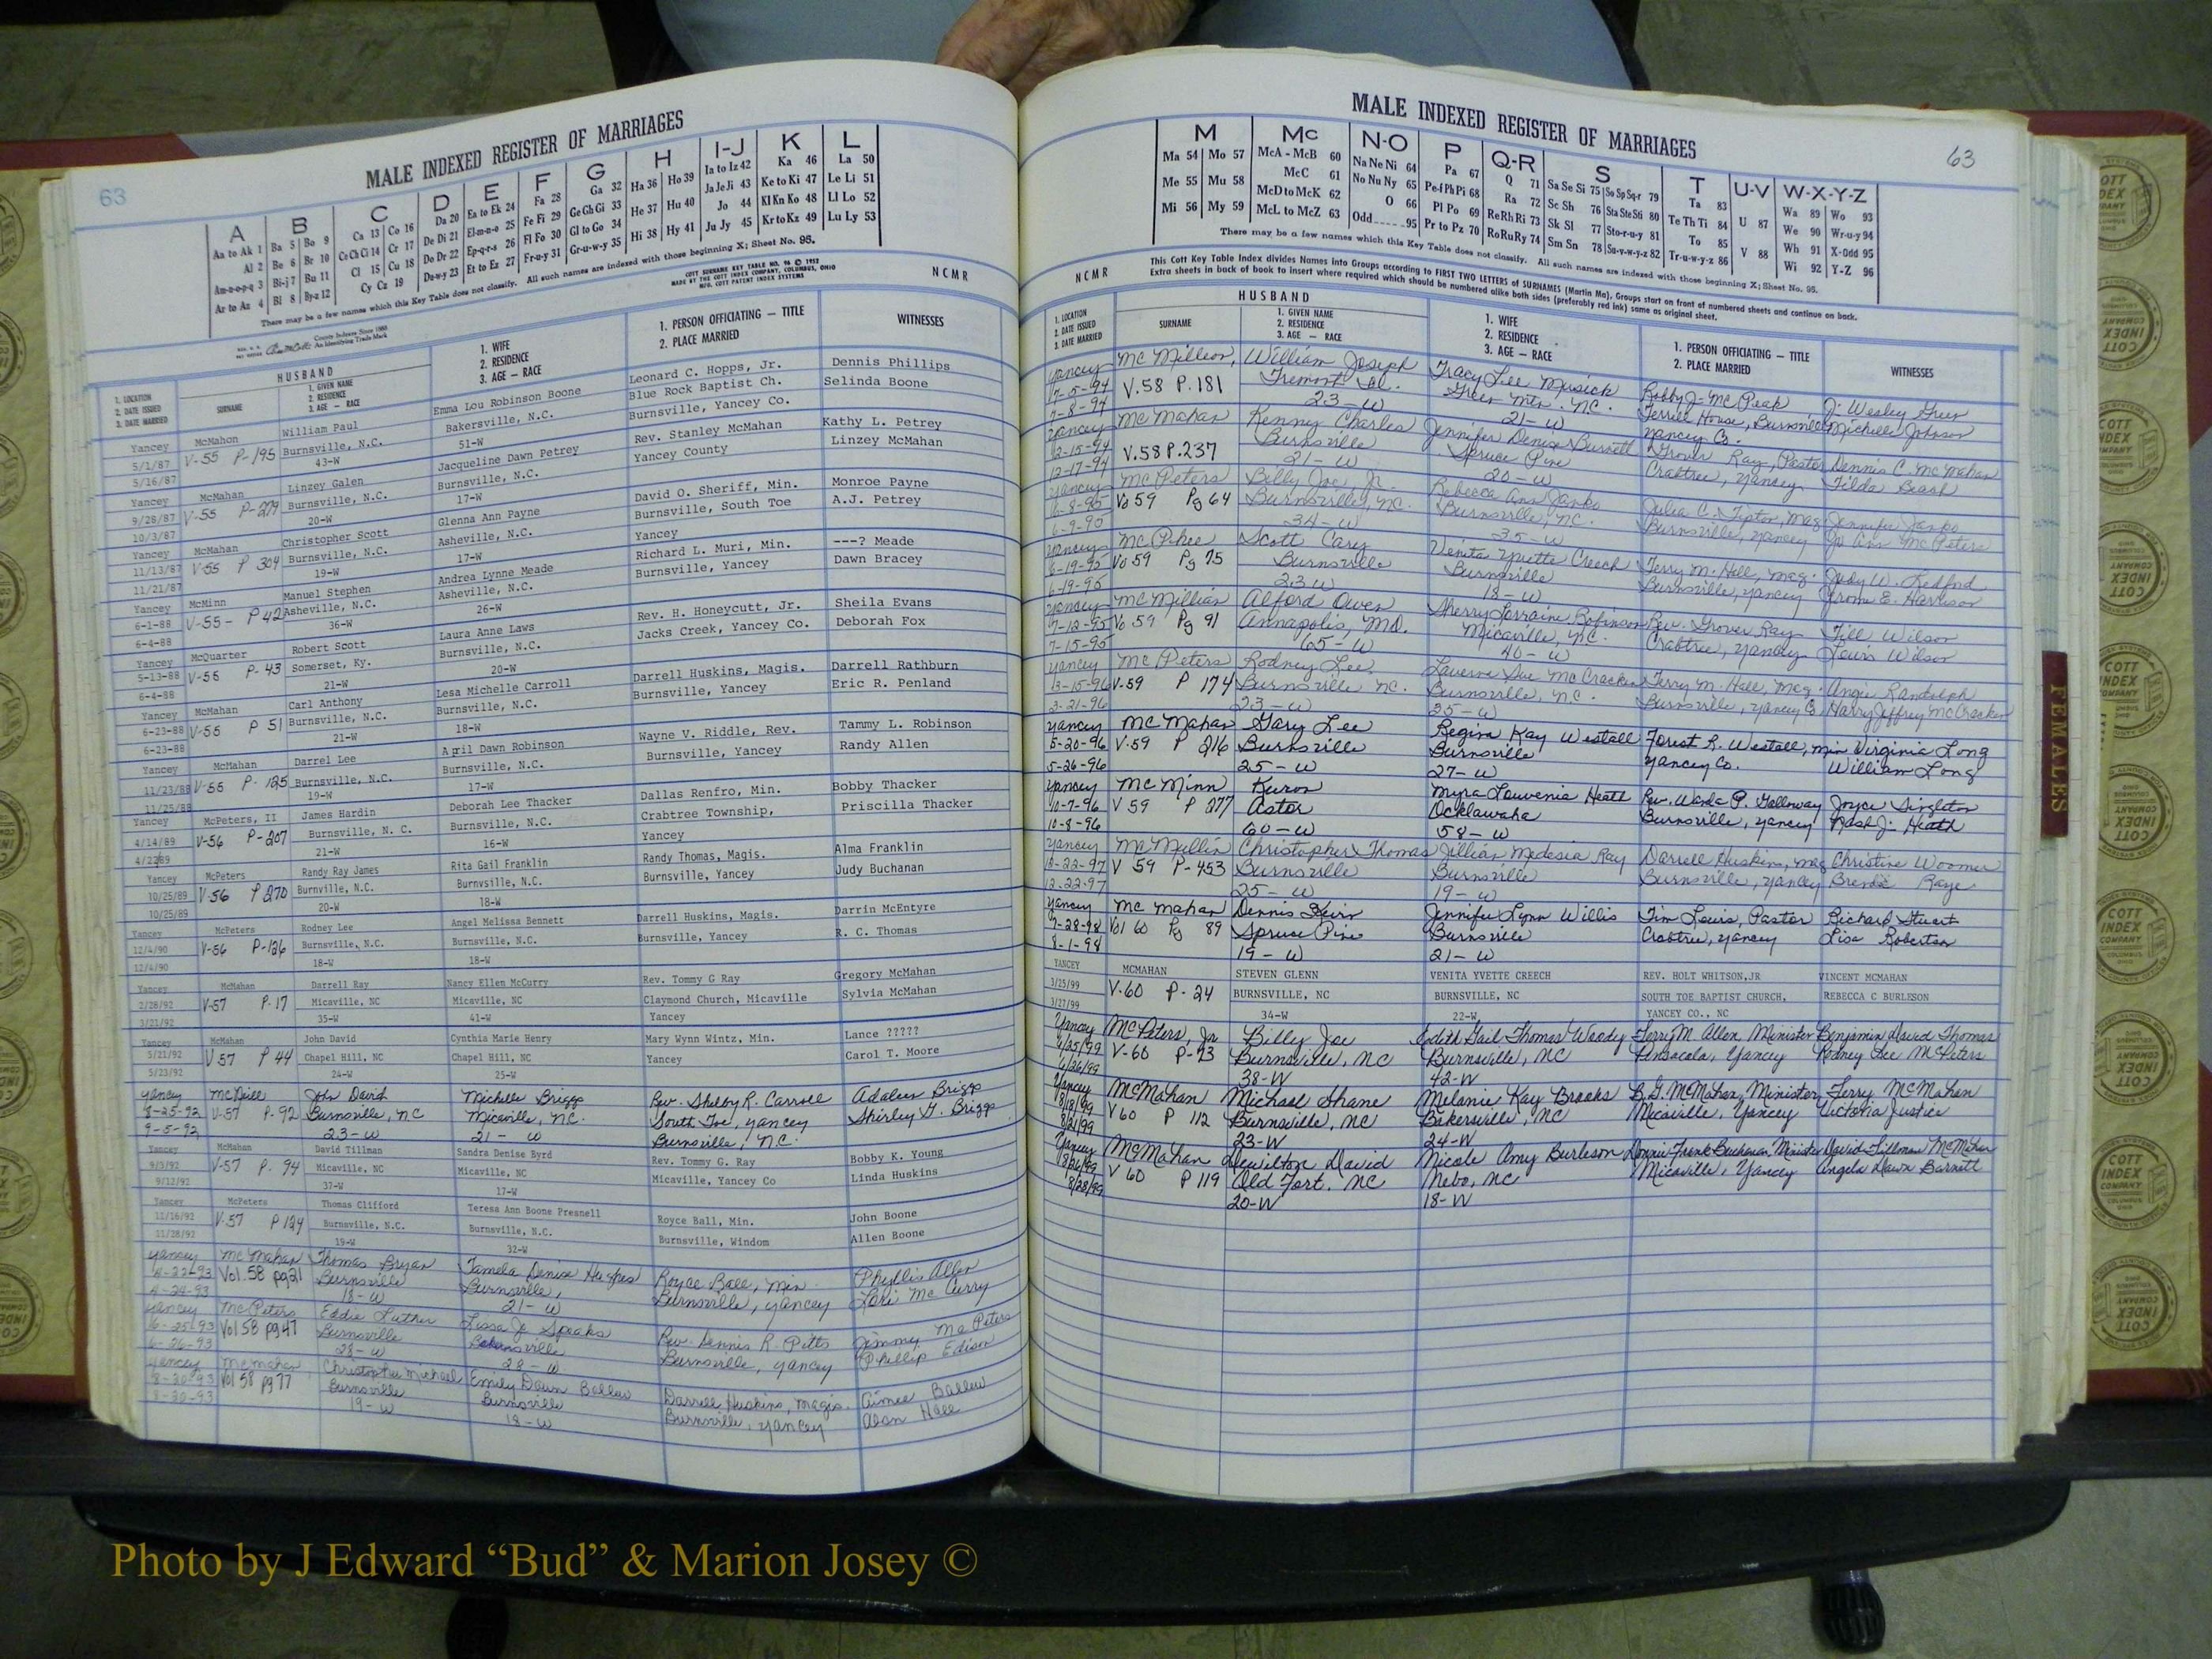 63
MALE INDEXED REGISTER OF MARRIAGES
A B C D E F G H I-J K L
Aa to Ak 1 Ba 5 Bo 9 Ca 13 Co 16 Da 20 Ea to Ek 24 Fa 28 Ga 32 Ha 36 Ho 39 Ia to Iz 42 Ka 46 La 50
Al 2 Be 6 Br 10 Ce Ch Ci 14 Cr 17 De Di 21 El-m-n-o 25 Fe Fi 29 Ge Gh Gi 33 He 37 Hu 40 Ja Je Ji 43 Ke to Ki 47 Le Li 51
Am-n-o-p-q 3 Bi-j 7 Bu 11 Cl 15 Cu 18 Do Dr 22 Ep-q-r-s 26 Fl Fo 30 Gl to Go 34 Hi 38 Hy 41 Jo 44 Kl Kn Ko 48 Ll Lo 52
Ar to Az 4 Bl 8 By-z 12 Cy Cz 19 Du-w-y 23 Et to Ez 27 Fr-u-y 31 Gr-u-w-y 35 Ju Jy 45 Kr to Kz 49 Lu Ly 53
There may be a few names which this Key Table does not classify. All such names are indexed with those beginning X; Sheet No. 96.
COTT SURNAME KEY TABLE NO. 96 © 1952
MADE BY THE COTT INDEX COMPANY, COLUMBUS, OHIO
MFG. COTT PATENT INDEX SYSTEMS
NCMR
County Indexes Since 1888
An Identifying Trade Mark
HUSBAND
1. LOCATION
2. DATE ISSUED
3. DATE MARRIED
SURNAME
1. GIVEN NAME
2. RESIDENCE
3. AGE — RACE
1. WIFE
2. RESIDENCE
3. AGE — RACE
1. PERSON OFFICIATING — TITLE
2. PLACE MARRIED
WITNESSES
Yancey McMahon William Paul Emma Lou Robinson Boone Leonard C. Hopps, Jr. Dennis Phillips
5/1/87 V-55 P-195 Burnsville, N.C. Bakersville, N.C. Blue Rock Baptist Ch. Selinda Boone
5/16/87 43-W 51-W Burnsville, Yancey Co.
Yancey McMahan Linzey Galen Jacqueline Dawn Petrey Rev. Stanley McMahan Kathy L. Petrey
9/28/87 V-55 P-279 Burnsville, N.C. Burnsville, N.C. Yancey County Linzey McMahan
10/3/87 20-W 17-W
Yancey McMahan Christopher Scott Glenna Ann Payne David O. Sheriff, Min. Monroe Payne
11/13/87 V-55 P 304 Burnsville, N.C. Asheville, N.C. Burnsville, South Toe A.J. Petrey
11/21/87 19-W 17-W Yancey
Yancey McMinn Manuel Stephen Andrea Lynne Meade Richard L. Muri, Min. ---? Meade
6-1-88 V-55- P 42 Asheville, N.C. Asheville, N.C. Burnsville, Yancey Dawn Bracey
6-4-88 36-W 26-W
Yancey McQuarter Robert Scott Laura Anne Laws Rev. H. Honeycutt, Jr. Sheila Evans
5-13-88 V-55 P-43 Somerset, Ky. Burnsville, N.C. Jacks Creek, Yancey Co. Deborah Fox
6-4-88 21-W 20-W
Yancey McMahan Carl Anthony Lesa Michelle Carroll Darrell Huskins, Magis. Darrell Rathburn
6-23-88 V-55 P 51 Burnsville, N.C. Burnsville, N.C. Burnsville, Yancey Eric R. Penland
6-23-88 21-W 18-W
Yancey McMahan Darrel Lee April Dawn Robinson Wayne V. Riddle, Rev. Tammy L. Robinson
11/23/88 V-55 P-125 Burnsville, N.C. Burnsville, N.C. Burnsville, Yancey Randy Allen
11/25/88 19-W 17-W
Yancey McPeters, II James Hardin Deborah Lee Thacker Dallas Renfro, Min. Bobby Thacker
4/14/89 V-56 P-207 Burnsville, N. C. Burnsville, N.C. Crabtree Township, Priscilla Thacker
4/22/89 21-W 16-W Yancey
Yancey McPeters Randy Ray James Rita Gail Franklin Randy Thomas, Magis. Alma Franklin
10/25/89 V-56 P 270 Burnville, N.C. Burnvsille, N.C. Burnsville, Yancey Judy Buchanan
10/25/89 20-W 18-W
Yancey McPeters Rodney Lee Angel Melissa Bennett Darrell Huskins, Magis. Darrin McEntyre
12/4/90 V-56 P-126 Burnsville, N.C. Burnsville, N.C. Burnsville, Yancey R. C. Thomas
12/4/90 18-W 18-W
Yancey McMahan Darrell Ray Nancy Ellen McCurry Rev. Tommy G Ray Gregory McMahan
2/28/92 V-57 P-17 Micaville, NC Micaville, NC Claymond Church, Micaville Sylvia McMahan
3/21/92 35-W 41-W Yancey
Yancey McMahan John David Cynthia Marie Henry Mary Wynn Wintz, Min. Lance ?????
5/21/92 V 57 P 44 Chapel Hill, NC Chapel Hill, NC Yancey Carol T. Moore
5/23/92 24-W 25-W
Yancey McNeill John David Michelle Briggs Rev. Shelby R. Carroll Adaleen Briggs
8-25-92 V-57 P-92 Burnsville, NC Micaville, N.C. South Toe, Yancey Shirley G. Briggs
9-5-92 23-W 21-W Burnsville, N.C.
Yancey McMahan David Tillman Sandra Denise Byrd Rev. Tommy G. Ray Bobby K. Young
9/3/92 V-57 P-94 Micaville, NC Micaville, NC Micaville, Yancey Co Linda Huskins
9/12/92 37-W 17-W
Yancey McPeters Thomas Clifford Teresa Ann Boone Presnell Royce Ball, Min. John Boone
11/16/92 V-57 P124 Burnsville, N.C. Burnsville, N.C. Burnsville, Windom Allen Boone
11/28/92 19-W 32-W
Yancey McMahan Thomas Bryan Tamela Denise Hughes Royce Ball, Min Phyllis Allen
4-22-93 Vol.58 pg21 Burnsville Burnsville, Burnsville, Yancey Lori McCurry
4-24-93 18-W 21-W
Yancey McPeters Eddie Luther Lissa Jo Speaks Rev. Dennis R. Pitts Jimmy McPeters
6-25-93 Vol 58 pg47 Burnsville Burnsville, Yancey Phillip Edison
6-26-93 28-W 28-W
Yancey McMahan Christopher Michael Emily Dawn Ballew Darrell Huskins, Magis. Aimee Ballew
8-20-93 Vol 58 pg77 Burnsville Burnsville Burnsville, Yancey Alan Hall
8-20-93 19-W 18-W
MALE INDEXED REGISTER OF MARRIAGES
63
M Mc N-O P Q-R S T U-V W-X-Y-Z
Ma 54 Mo 57 McA - McB 60 Na Ne Ni 64 Pa 67 Q 71 Sa Se Si 75 So Sp Sq-r 79 Ta 83 U 87 Wa 89 Wo 93
Me 55 Mu 58 McC 61 No Nu Ny 65 Pe-f Ph Pi 68 Ra 72 Sc Sh 76 Sta Ste Sti 80 Te Th Ti 84 V 88 We 90 Wr-u-y 94
Mi 56 My 59 McD to McK 62 O 66 Pl Po 69 Re Rh Ri 73 Sk Sl 77 Sto-r-u-y 81 To 85 Wh 91 X-Odd 95
McL to McZ 63 Odd 95 Pr to Pz 70 Ro Ru Ry 74 Sm Sn 78 Su-v-w-y-z 82 Tr-u-w-y-z 86 Wi 92 Y-Z 96
There may be a few names which this Key Table does not classify. All such names are indexed with those beginning X; Sheet No. 96.
NCMR
This Cott Key Table Index divides Names into Groups according to FIRST TWO LETTERS of SURNAMES (Martin Ma), Groups start on front of numbered sheets and continue on back.
Extra sheets in back of book to insert where required which should be numbered alike both sides (preferably red ink) same as original sheet.
HUSBAND
1. LOCATION
2. DATE ISSUED
3. DATE MARRIED
SURNAME
1. GIVEN NAME
2. RESIDENCE
3. AGE — RACE
1. WIFE
2. RESIDENCE
3. AGE — RACE
1. PERSON OFFICIATING — TITLE
2. PLACE MARRIED
WITNESSES
Yancey McMillion, William Joseph Tracy Lee Musick Robby J. McPeak J. Wesley Greer
7-5-94 V.58 P.181 Fremont, Green Mtn. NC. Terrell House, Burnsville Michelle Johnson
7-8-94 23-W 21-W Yancey Co.
Yancey McMahan Kenny Charles Jennifer Denise Burnett Grover Ray, Pastor Dennis C. McMahan
12-15-94 V.58 P.237 Burnsville Spruce Pine Crabtree, Yancey Tilda Beash
12-17-94 21-W 20-W
Yancey McPeters Billy Joe, Jr. Rebecca Ann Janks Julia C. Tipton, Mag Jennifer Janks
6-8-95 Vo 59 Pg 64 Burnsville, NC. Burnsville, NC. Burnsville, Yancey Jo Ann McPeters
6-9-95 34-W 35-W
Yancey McPhee Scott Cary Venita Yvette Creech Terry M. Hall, Mag. Judy W. Ledford
6-19-95 Vo 59 Pg 75 Burnsville Burnsville Burnsville, Yancey Jrome E. Harrison
6-19-95 23 W 18-W
Yancey McMillian Alford Owen Sherry Lorraine Robinson Rev. Grover Ray Till Wilson
7-12-95 Vo 59 Pg 91 Annapolis, MD. Micaville, NC. Crabtree, Yancey Lewis Wilson
7-15-95 65-W 40-W
Yancey McPeters Rodney Lee Laverne Sue McCracken Terry M. Hall, Mag. Angie Randolph
3-15-96 V-59 P 174 Burnsville NC. Burnsville, NC. Burnsville, Yancey Co Harry Jeffrey McCracken
3-21-96 23-W 25-W
Yancey McMahan Gary Lee Regina Kay Westall Forest R. Westall, Min Virginia Long
5-20-96 V-59 P 216 Burnsville Burnsville Yancey Co. William Long
5-26-96 25-W 27-W
Yancey McMinn Kuron Myra Louvenia Heath Rev. Warda P. Galloway Joyce Singleton
10-7-96 V 59 P 277 Astor Ocklawaha Burnsville, Yancey Nash J. Heath
10-8-96 60-W 58-W
Yancey McMullin Christopher Thomas Jillian Medesia Ray Darrell Huskins, Mag Christine Woomer
12-22-97 V 59 P-453 Burnsville Burnsville Burnsville, Yancey Brenda Raye
12-22-97 25-W 19-W
Yancey McMahan Dennis Keirn Jennifer Lynn Willis Tim Lewis, Pastor Richard Stuart
7-28-98 Vol 60 Pg 89 Spruce Pine Burnsville Crabtree, Yancey Lisa Robertson
8-1-98 19-W 21-W
YANCEY MCMAHAN STEVEN GLENN VENITA YVETTE CREECH REV. HOLT WHITSON,JR VINCENT MCMAHAN
3/25/99 V-60 P-24 BURNSVILLE, NC BURNSVILLE, NC SOUTH TOE BAPTIST CHURCH, REBECCA C BURLESON
3/27/99 34-W 22-W YANCEY CO., NC
Yancey McPeters, Jr Billy Joe Edith Gail Thomas Woody Terry M Allen, Minister Benjamin David Thomas
6/25/99 V-60 P-93 Burnsville, NC Burnsville, NC Pensacola, Yancey Rodney Lee McPeters
6/26/99 38-W 42-W
Yancey McMahan Michael Shane Melanie Kay Brooks B.G. McMahan, Minister Terry McMahan
8/18/99 V 60 P 112 Burnsville, NC Bakersville, NC Micaville, Yancey Victoria Justice
8/21/99 23-W 24-W
Yancey McMahan Dewilton David Nicole Amy Burleson Donnie Frank Buchanan, Minister David Tillman McMahan
8/26/99 V 60 P 119 Old Fort, NC Nebo, NC Micaville, Yancey Angela Dawn Barnett
8/28/99 20-W 18-W
FEMALES
COTT
INDEX
COMPANY
Photo by J Edward “Bud” & Marion Josey ©